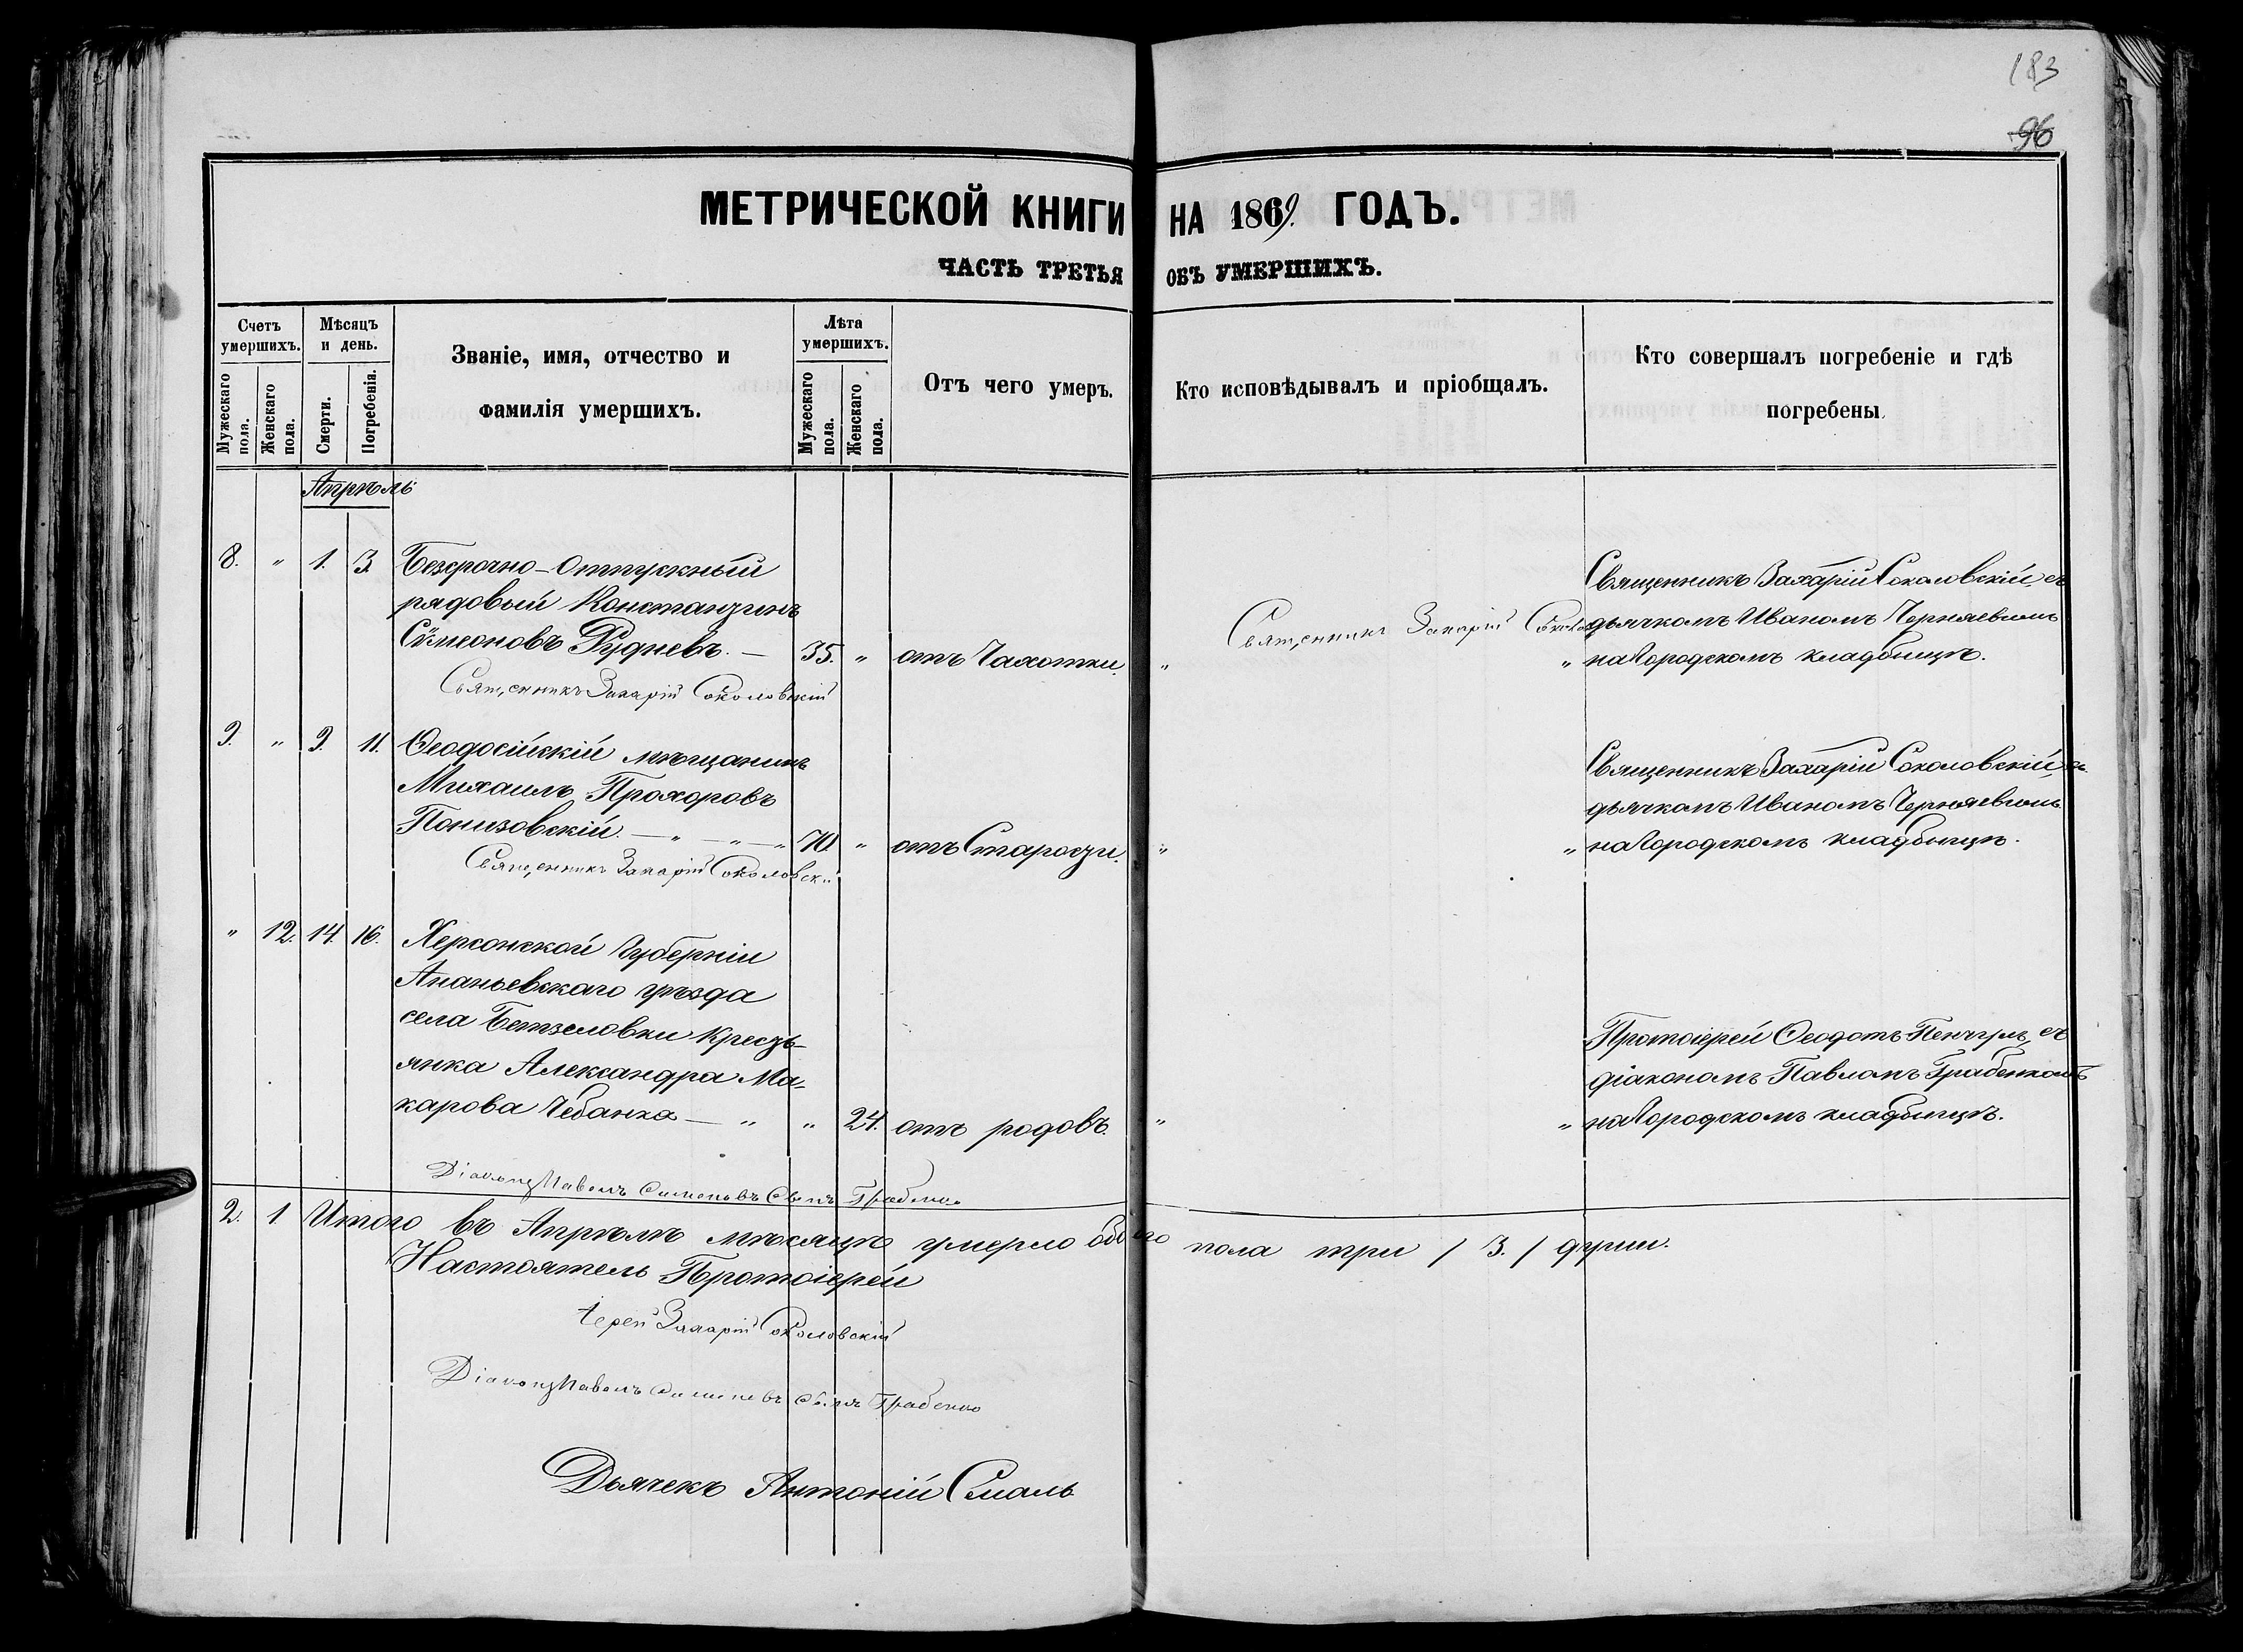 183
96
МЕТРИЧЕСКОЙ КНИГИ НА 1869. ГОДЪ.
ЧАСТЬ ТРЕТЬЯ ОБЪ УМЕРШИХЪ.
Счетъ умершихъ.
Мужескаго пола.
Женскаго пола.
Мѣсяцъ и день.
Смерти.
Погребенія.
Званіе, имя, отчество и
фамилія умершихъ.
Лѣта умершихъ.
Мужескаго пола.
Женскаго пола.
Отъ чего умеръ.
Кто исповѣдывалъ и пріобщалъ.
Кто совершалъ погребеніе и гдѣ
погребены.
Апрѣль
8. " 1. 3. Безсрочно-Отпускный
рядовый Константинъ
Сѵмеоновъ Рудневъ. — 35. " отъ Чахотки. "
Священникъ Захарій Соколовскій
Священникъ Захарій
Священникъ Захарій Соколовскій, съ
дьячкомъ Иваномъ Черняевымъ
" на Городскомъ кладбищѣ.
9. " 9. 11. Ѳеодосійскій мѣщанинъ
Михаилъ Прохоровъ
Понизовскій. — " — " — " 70. " отъ Старости. "
Священникъ Захарій Соколовскій
Священникъ Захарій Соколовскій, съ
дьячкомъ Иваномъ Черняевымъ
" на Городскомъ кладбищѣ.
" 12. 14. 16. Херсонской Губерніи
Ананьевскаго уѣзда
села Бетзеловки Кресть-
янка Александра Ма-
карова Чебанка — " " 24. отъ родовъ. "
Діаконъ Павелъ Симеоновъ Сынъ Грабенко
Протоіерей Ѳеодотъ Пенчулъ, съ
діакономъ Павломъ Грабенкомъ
" на Городскомъ кладбищѣ.
2. 1 Итого въ Апрѣлѣ мѣсяцѣ умерло обоего пола три / 3. / души.
Настоятель Протоіерей
Іерей Захарій Соколовскій
Діаконъ Павелъ Симеоновъ Сынъ Грабенко
Дьячекъ Антоній Смаль